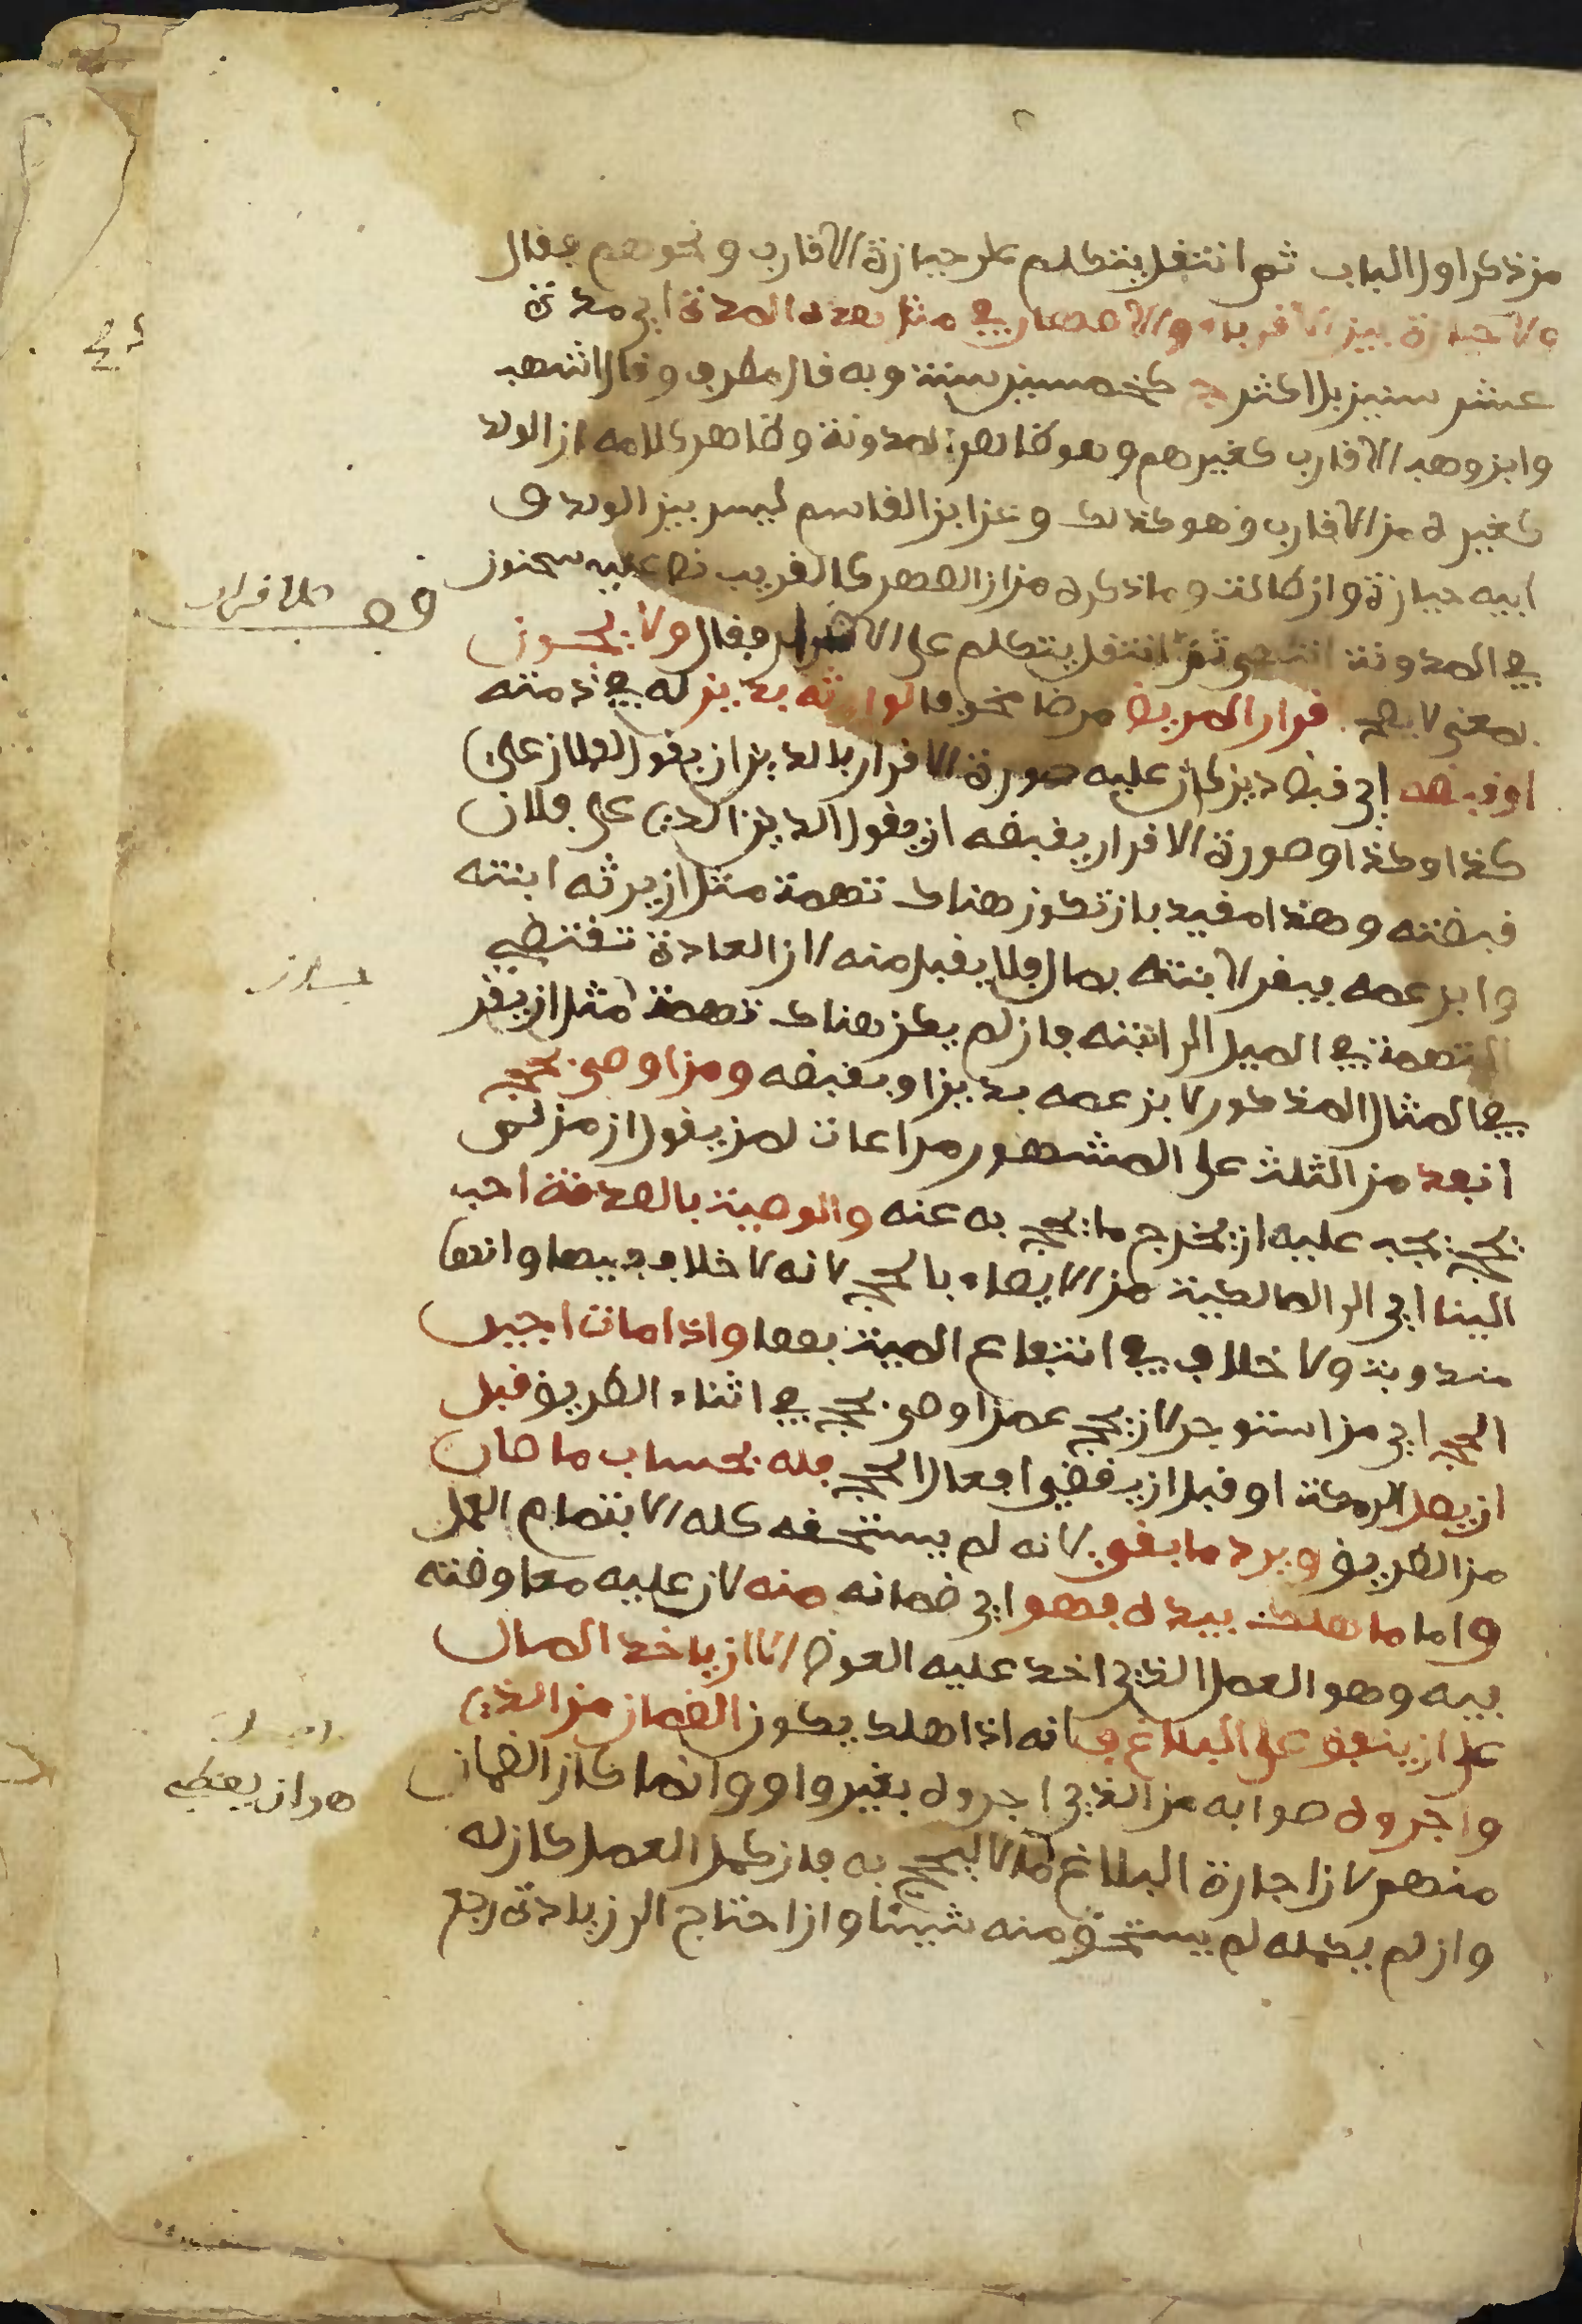 من ذكر اول الباب ثم انتقل يتكلم على حيازة الاقارب ونحوهم فقال
ولا حيازة بين الاقرباء والاصهار في مثل هذه المدة اي مدة
عشر سنين بل اكثر كخمسين سنة وبه قال مطرف وقال اشهب
وابن وهب الاقارب كغيرهم وهو ظاهر المدونة وظاهر كلامه ان الولد
كغيره من الاقارب وهو كذلك وعن ابن القاسم ليس بين الولد و
ابيه حيازة وان طالت وما ذكره من ان الصهر كالقريب نص عليه سحنون
في المدونة انتهى ثم انتقل يتكلم على الاقرار فقال ولا يجوز
بمعنى لا يصح اقرار المريض مرضا مخوفا لوارثه بدين له في ذمته
او قبضه اي قبض دين كان عليه صورة الاقرار بالدين ان يقول لفلان علي
كذا وكذا وصورة الاقرار بقبضه ان يقول الدين الذي على فلان
قبضته وهذا مقيد بان تكون هناك تهمة مثل ان يرثه ابنته
وابن عمه فيقر لابنته بمال فلا يقبل منه لان العادة تقتضي
التهمة في الميل الى ابنته فان لم يكن هناك تهمة مثل ان يقر
في المثال المذكور لابن عمه بدين او بقبضه ومن اوصى بحج
انفذ من الثلث على المشهور مراعات لمن يقول ان من لم
يحج يجب عليه ان يخرج ما يحج به عنه والوصية بالصدقة احب
الينا اي الى المالكية من الايصاء بالحج لانه لا خلاف فيها وانها
مندوبة ولا خلاف في انتفاع الميت بها واذا مات اجير
الحج اي من استوجر لان يحج عمن اوصى بحج في اثناء الطريق قبل
ان يصل الى مكة او قبل ان يقضي افعال الحج فله بحساب ما سار
من الطريق ويرد ما بقي لانه لم يستحقه كله الا بتمام العمل
واما ما هلك بيده فهو اي ضمانه منه لان عليه معاوضته
فيه وهو العمل الذي اخذ عليه العوض الا ان ياخذ المال
على ان ينفق على البلاغ فانه اذا هلك يكون الضمان من الذي
واجروه صوابه من الذي اجروه بغير واو وانما كان الضمان
منهم لان اجارة البلاغ مال ليحج به فان كمل العمل كان له
وان لم يكمله لم يستحق منه شيئا وان احتاج الى زيادة رجع